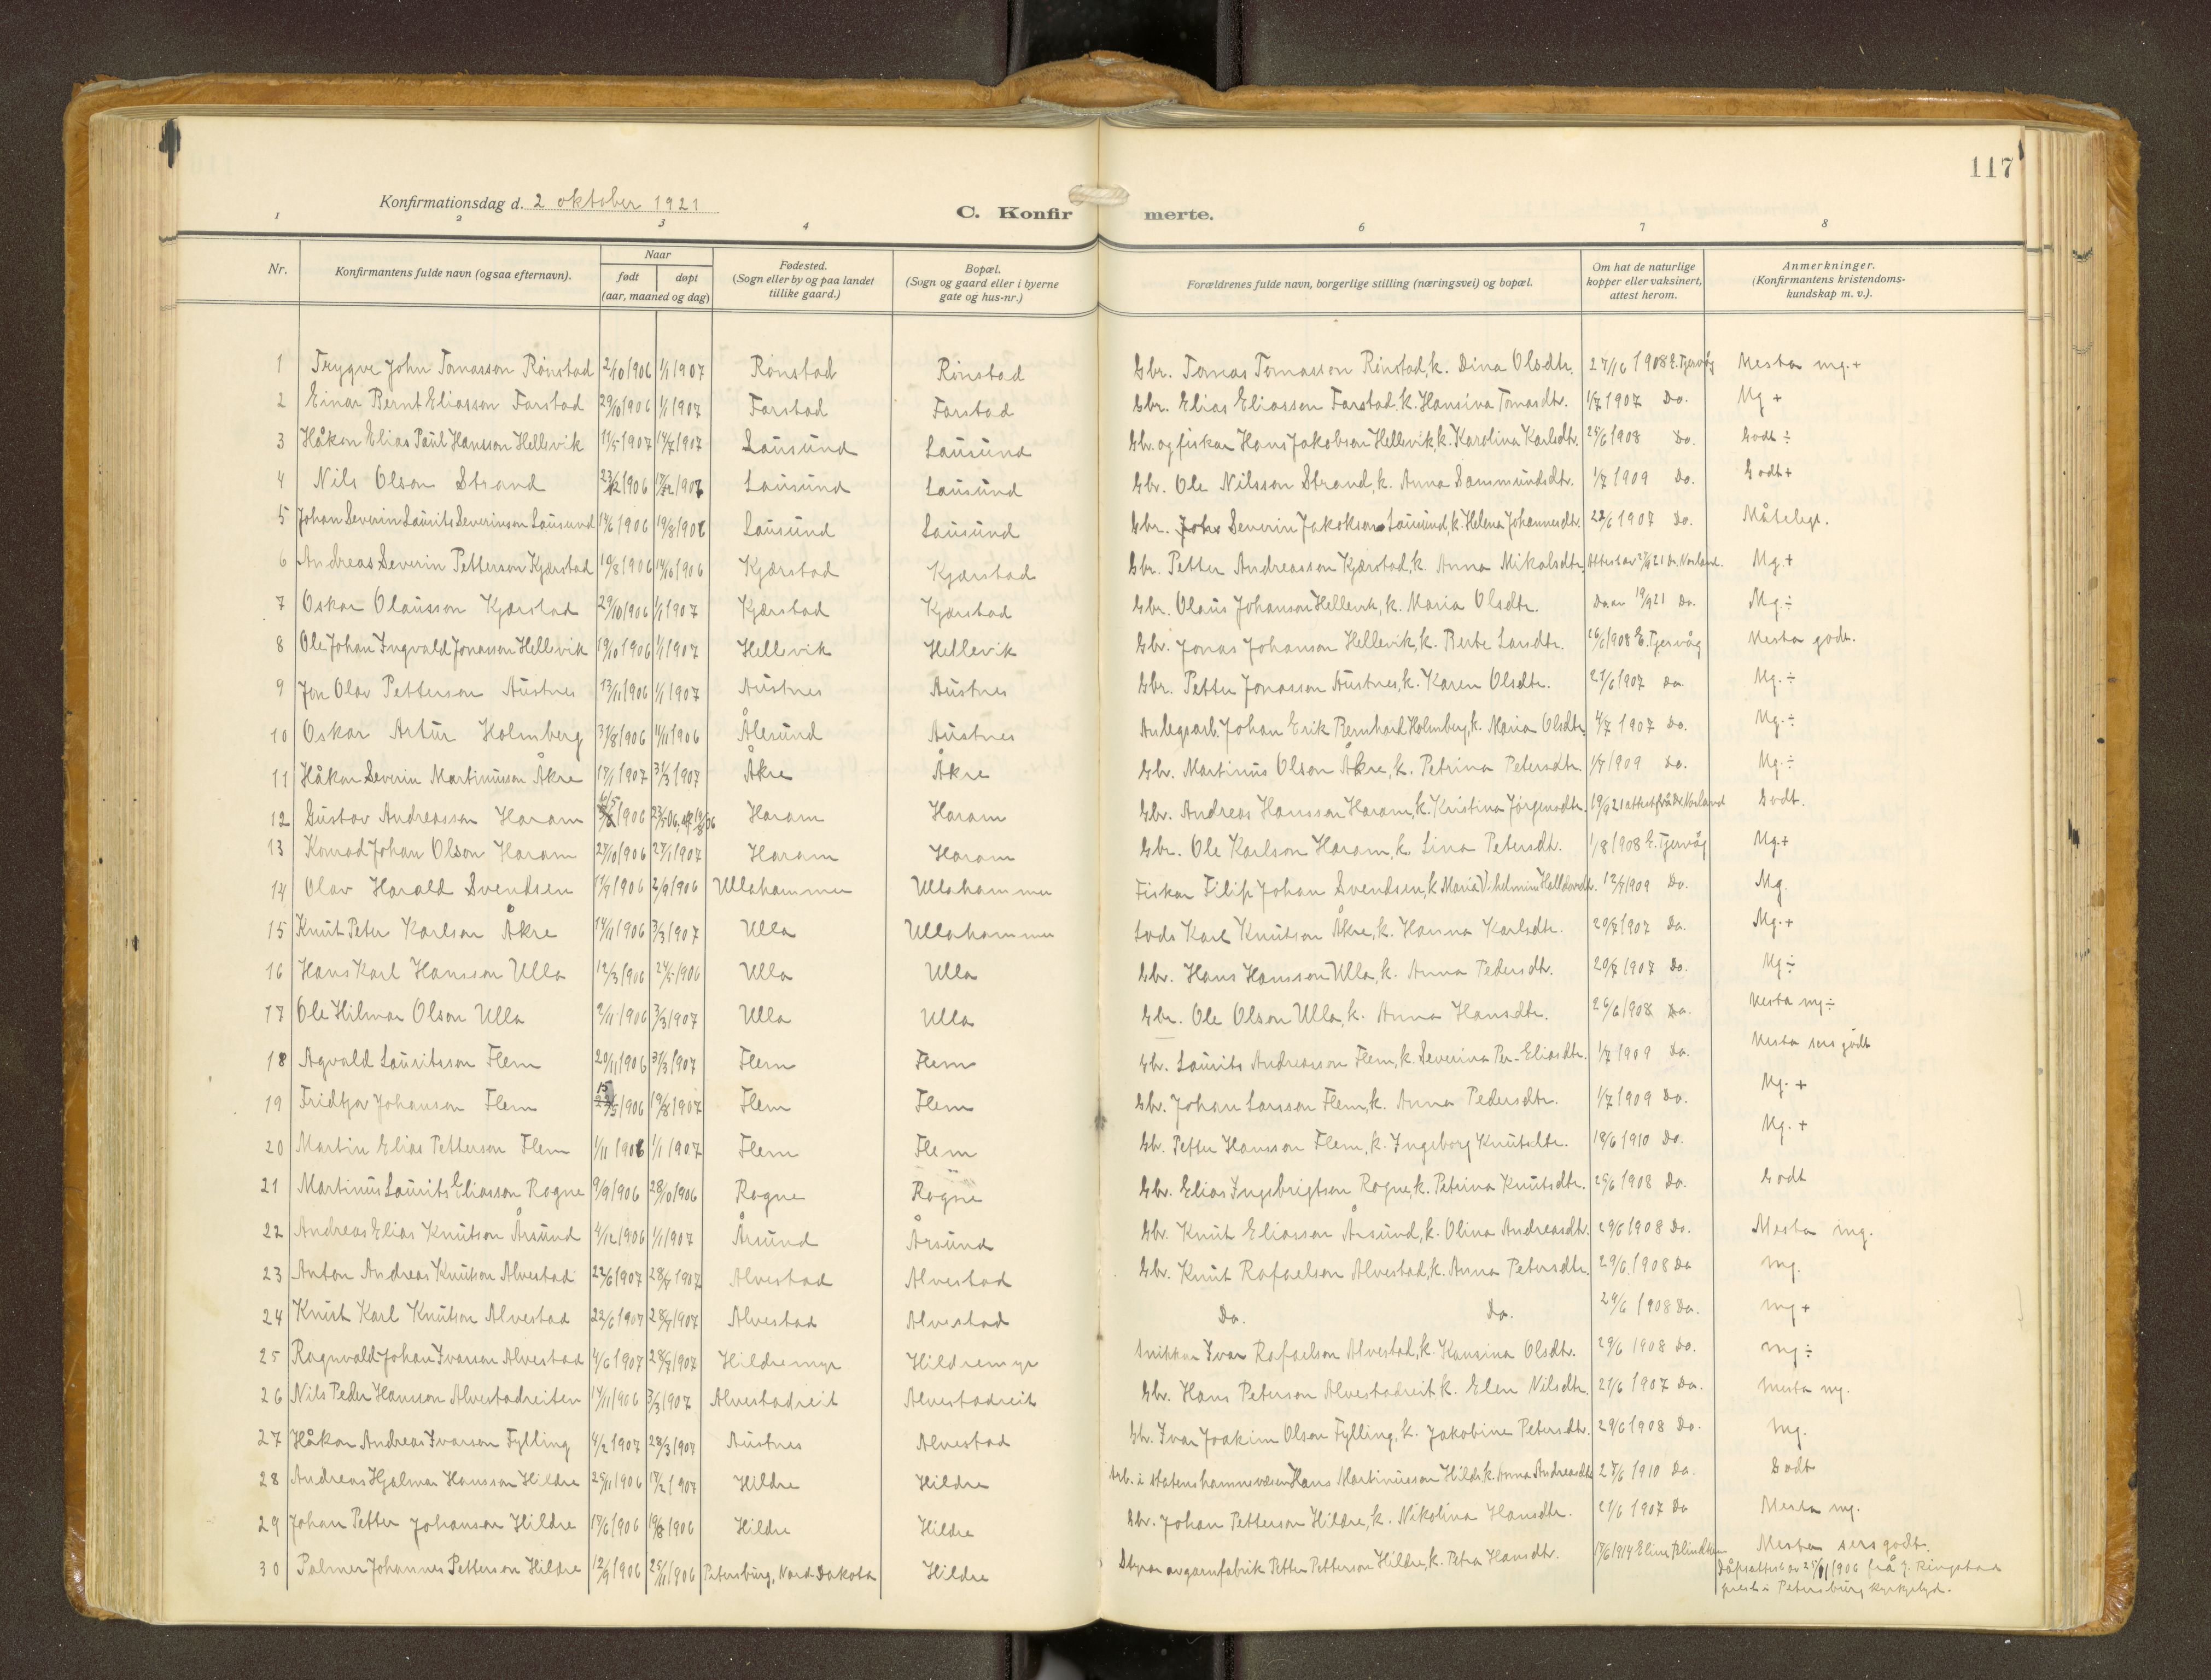 117
Konfirmationsdag d. 2 oktober 1921
C. Konfirmerte.
1 2 3 4 6 7 8
Nr. Konfirmantens fulde navn (ogsaa efternavn). Naar født døpt (aar, maaned og dag) Fødested. (Sogn eller by og paa landet tillike gaard.) Bopæl. (Sogn og gaard eller i byerne gate og hus-nr.) Forældrenes fulde navn, borgerlige stilling (næringsvei) og bopæl. Om hat de naturlige kopper eller vaksinert, attest herom. Anmerkninger. (Konfirmantens kristendomskundskap m. v.).
1 Trygve John Tomasson Rönstad 2/10 1906 1/1 1907 Rönstad Rönstad Gbr. Tomas Tomasson Rönstad, k. Dina Olsdtr. 1908 E. Tjervåg Mesta mg.+
2 Einar Bernt Eliasson Farstad 29/10 1906 1/1 1907 Farstad Farstad Gbr. Elias Eliasson Farstad, k. Hansina Tomasdtr. 1/7 1907 Do. Mg +
3 Håkon Elias Paul Hansson Hellevik 11/5 1907 14/7 1907 Lausund Lausund Gbr. og fiskar Hans Jakobson Hellevik, k. Karolina Karlsdtr. 25/6 1908 Do. Godt ÷
4 Nils Olson Strand 1906 Lausund Lausund Gbr. Ole Nilsson Strand, k. Anna 1/7 1909 Do. Godt +
5 Johan Severin Laurits Severinson Lausund 1906 19/8 1906 Lausund Lausund Gbr. Severin Jakobson Lausund, k. Helena Johannesdtr. 22/6 1907 Do. Måtelegt.
6 Andreas Severin Petterson Kjærstad 19/8 1906 14/10 1906 Kjærstad Kjærstad Gbr. Petter Andreasson Kjærstad, k. Anna Mikalsdtr. Attest av 21 Dr. Norland. Mg.+
7 Oskar Olausson Kjærstad 29/10 1906 1/1 1907 Kjærstad Kjærstad Gbr. Olaus Johanson Hellevik, k. Maria Olsdtr. Do av 19/9 21 Do. Mg.÷
8 Ole Johan Ingvald Jonasson Hellevik 19/10 1906 1/1 1907 Hellevik Hellevik Gbr. Jonas Johanson Hellevik, k. Berte Larsdtr. 26/6 1908 E. Tjervåg Mesta godt.
9 Jon Olav Petterson Austnes 13/11 1906 1/1 1907 Austnes Austnes Gbr. Petter Jonasson Austnes, k. Karen Olsdtr. 21/6 1907 Do. Mg.÷
10 Oskar Artur Holmberg 31/8 1906 11/11 1906 Ålesund Austnes Anlegsarb. Johan Erik Bernhard Holmberg, k. Maria Olsdtr. 4/7 1907 Do. Mg.÷
11 Håkon Severin Martinusson Åkre 17/1 1907 31/3 1907 Åkre Åkre Gbr. Martinus Olson Åkre, k. Petrina Petersdtr. 1/7 1909 Do. Mg.÷
12 Gustav Andreasson Haram 1906 Haram Haram Gbr. Andreas Hansson Haram, k. Kristina Jörgensdtr. 19/9 21 attest frå Dr. Norland Godt.
13 Konrad Johan Olson Haram 27/10 1906 27/1 1907 Haram Haram Gbr. Ole Karlson Haram, k. Lina Petersdtr. 1/8 1908 E. Tjervåg Mg.+
14 Olav Harald Svendsen 1906 2/9 1906 Ullahammer Ullahammer Fiskar Filip Johan Svendsen, k. Maria Vilhelmine 12/7 1909 Do. Mg.
15 Knut Peter Karlson Åkre 14/11 1906 3/3 1907 Ulla Ullahammer Lods Karl Knutson Åkre, k. Hanna Karlsdtr. 20/7 1907 Do. Mg.+
16 Hans Karl Hansson Ulla 12/3 1906 24/5 1906 Ulla Ulla Gbr. Hans Hansson Ulla, k. Anna Pedersdtr. 20/7 1907 Do. Mg ÷
17 Ole Hilmar Olson Ulla 2/11 1906 3/3 1907 Ulla Ulla Gbr. Ole Olson Ulla, k. Anna Hansdtr. 26/6 1908 Do. Mesta mg ÷
18 Agvald Lauritsson Flem 20/11 1906 31/3 1907 Flem Flem Gbr. Laurits Andreasson Flem, k. Severina Per-Eliasdtr. 1/7 1909 Do. Mesta sers godt
19 Fridtjov Johanson Flem 1906 19/8 1907 Flem Flem Gbr. Johan Larsson Flem, k. Anna Pedersdtr. 1/7 1909 Do. Mg. +
20 Martin Elias Petterson Flem 1/11 1906 1/1 1907 Flem Flem Gbr. Petter Hansson Flem, k. Ingeborg Knutsdtr. 18/6 1910 Do. Mg. +
21 Martinus Laurits Eliasson Rogne 9/9 1906 28/10 1906 Rogne Rogne Gbr. Elias Ingebrigtson Rogne, k. Petrina Knutsdtr. 25/6 1908 Do. Godt
22 Andreas Elias Knutson Årsund 4/12 1906 1/1 1907 Årsund Årsund Gbr. Knut Eliasson Årsund, k. Olina Andreasdtr. 29/6 1908 Do. Mesta mg.
23 Anton Andreas Knutson Alvestad 22/6 1907 28/7 1907 Alvestad Alvestad Gbr. Knut Rafaelson Alvestad, k. Anna Petersdtr. 29/6 1908 Do mg.
24 Knut Karl Knutson Alvestad 22/6 1907 28/7 1907 Alvestad Alvestad Do. Do. 29/6 1908 Do. mg +
25 Ragnvald Johan Ivarson Alvestad 4/6 1907 28/7 1907 Hildremyr Hildremyr Snikkar Ivar Rafaelson Alvestad, k. Hansina Olsdtr. 29/6 1908 Do. mg ÷
26 Nils Peder Hansson Alvestadreiten 14/11 1906 3/3 1907 Alvestadreit Alvestadreit Gbr. Hans Peterson Alvestadreit, k. Elen Nilsdtr. 21/6 1907 Do. mesta mg.
27 Håkon Andreas Ivarson Fylling 4/2 1907 28/3 1907 Austnes Alvestad Gbr. Ivar Joakim Olson Fylling, k. Jakobine Petersdtr. 29/6 1908 Do. Mg.
28 Andreas Hjalmar Hansson Hildre 25/11 1906 17/2 1907 Hildre Hildre Arb. i statens hamnevæsen Hans Martinusson Hildre, k. Anna Andreasdtr. 27/6 1910 Do. Godt
29 Johan Petter Johanson Hildre 17/6 1906 19/8 1906 Hildre Hildre Gbr. Johan Petterson Hildre, k. Nikolina Hansdtr. 21/6 1907 Do Mesta mg.
30 Palmer Johannes Petterson Hildre 12/9 1906 25/11 1906 Petersburg, Nord-Dakota Hildre Styrar av garnfabrik Petter Petterson Hildre, k. Petra Hansdtr. 17/6 1914 Eline Mesta sers godt.
Dåpsattest av 25/11 1906 frå J. Ringstad
prest i Petersburg kyrkjelyd.